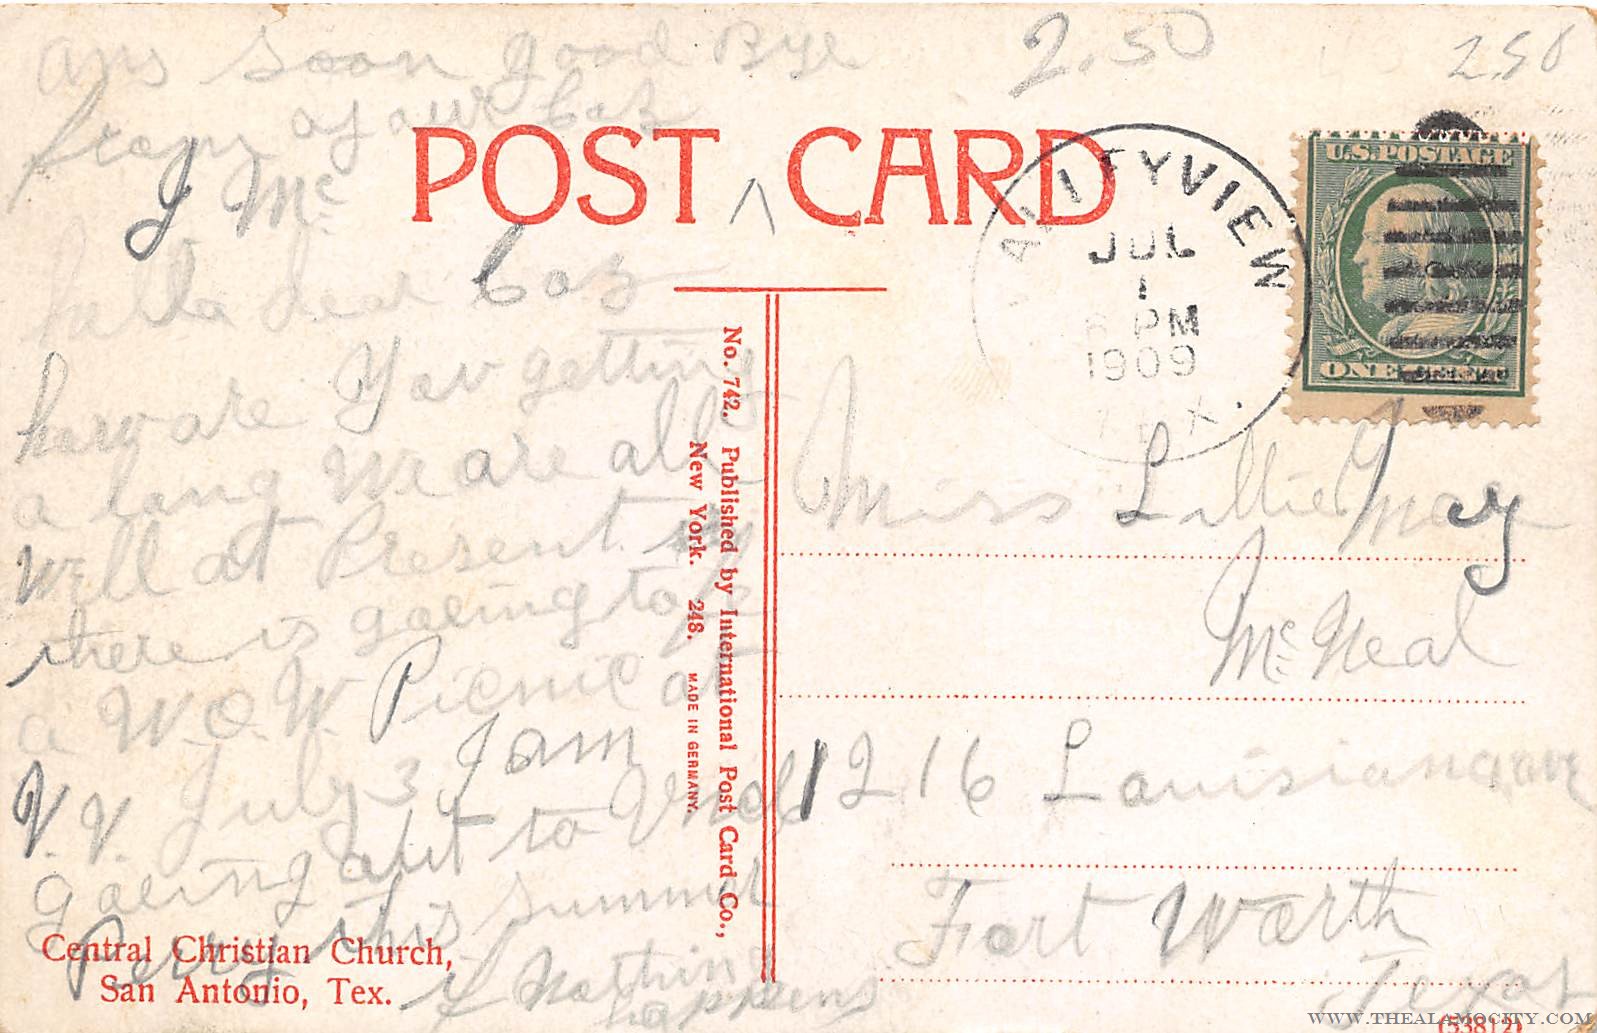 ans soon good Bye
from your Coz
J Mc
2.50
2.50
POST CARD
VALLEYVIEW
JUL
1
6 PM
1909
TEX.
U.S. POSTAGE
ONE CENT
hallo dear Coz
how are You getting
a long We are all
Well at Present
there is goeing to be
a W.O.W. Picnic at
V.V. July 3 I am
goeing out to Uncl
Perry this summer
if nothing
happens
No. 742. Published by International Post Card Co.,
New York. 248. MADE IN GERMANY.
Miss Lillie May
McNeal
1216 Louisiana ave
Fort Worth
Texas
Central Christian Church,
San Antonio, Tex.
(53812)
WWW.THEALAMOCITY.COM